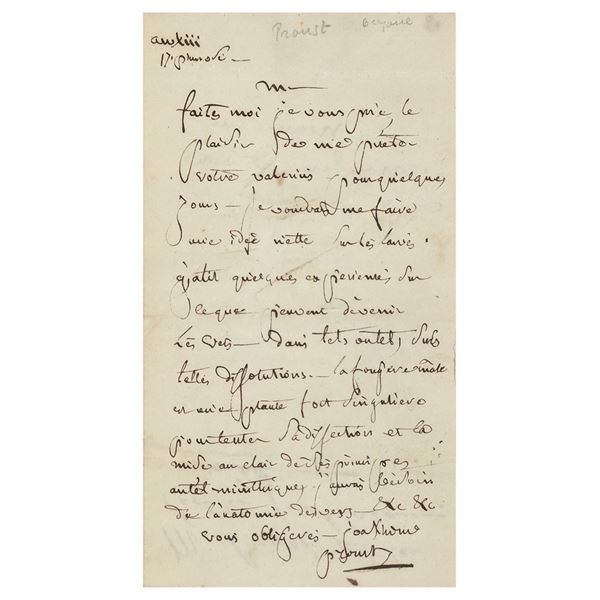 Proust
an xiii
17
M
faites moi je vous prie, le
plaisir de me prêter
votre valerius pour quelques
jours — je voudrais me faire
une idée nette sur les larves.
quelques experiences sur
ce que peuvent devenir
Les vers — dans tels ou tels, sucs
telles dissolutions. — la fougere male
est une plante fort singuliere
pour tenter sa dissection et la
mise au clair de ses principes
antelminthiques, j'aurais besoin
de l'anatomie des vers — &c &c
vous obligeres —
proust